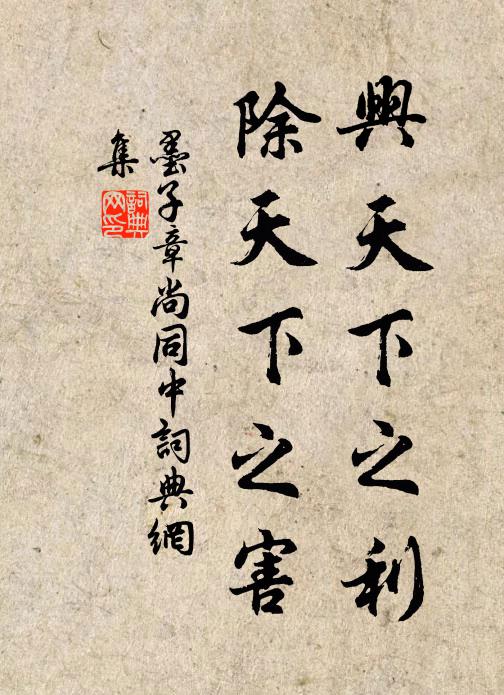 興天下之利
除天下之害
墨子章尚同中詞典網
集
詞典
网印